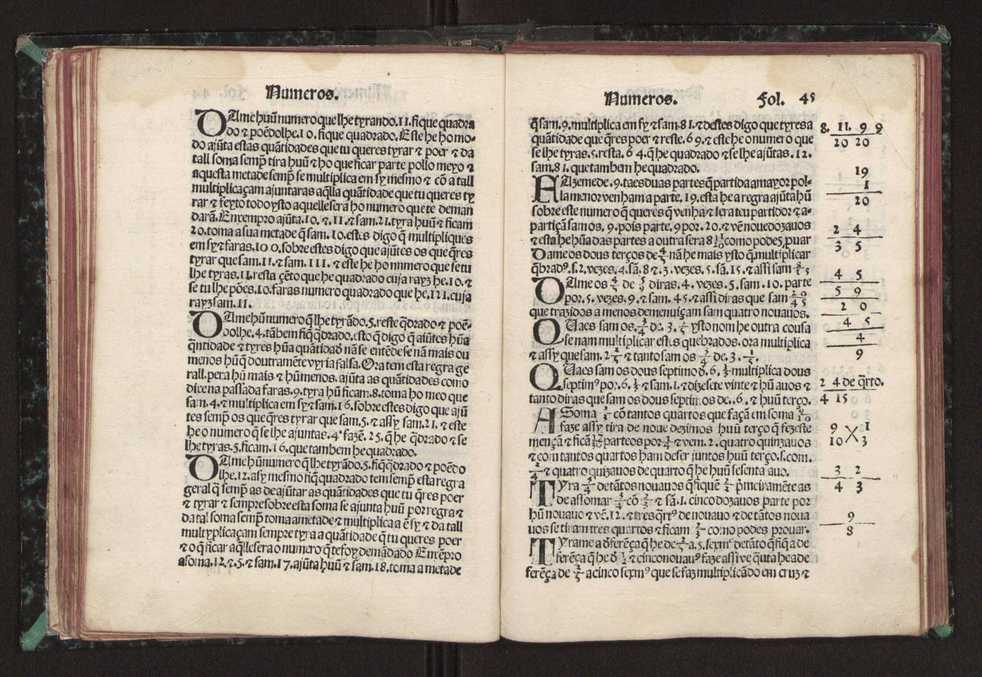 Numeros.
Dalme huũ numero que lhe tyrando.11.fique quadra
do & poẽdolhe.10.fique quadrado. Este he ho mo-
do ajũta estas quãtidades que tu queres tyrar & poer & da
tall soma semp̃ tira huũ & ho que ficar parte pollo meyo &
aquesta metade semp̃ se multiplica em sy mesmo & cõ a tall
multiplicaçam ajuntaras aq̃lla quãtidade que tu queres ty
rar & feyto todo ysto aquelle sera ho numero que te deman
darã. Enxempro ajũta.10. & .11 & sam.21. tyra huũ & ficam
20. toma a sua metade q̃ sam.10. estes digo q̃ multipliques
em sy & faras.100. sobre estes digo que ajũtes os que q̃res
tyrar que sam.11. & sam.111. & este he ho numero que se tu
lhe tyras.11. resta çẽto que he quadrado cuja rayz he.10. &
se tu lhe põees.10. faras numero quadrado que he.121. cuja
rayz sam.11.
Dalme hũ numero q̃ lhe tyrãdo.5. reste q̃drado & poẽ-
doolhe.4. tãbem fiq̃ q̃drado. esto q̃ digo q̃ ajũtes hũa
q̃ntidade & tyres hũa quãtidad nã se entẽde se nã mais ou
menos hũ q̃ doutra mẽte vyria falsa. Ora tem esta regra ge
rall. pera hũ mais & hũ menos. ajũta as quãtidades como
dice na passada faras.9. tyra hũ ficam.8. toma ho meo que
sam.4. & multiplica em sy & sam.16. sobre estes digo que ajũ
tes semp̃ os que q̃res tyrar que sam.5. & assy sam.21. & este
he o numero q̃ se lhe ajuntas.4. fazẽ.25. q̃ he q̃drado & se
lhe tyras.5. ficam.16. que tambem he quadrado.
Dalme hũ numero q̃ lhe tyrãdo.5. fiq̃ q̃drado & poẽdo
lhe.12. assy mesmo fiq̃ quadrado tem semp̃ esta regra
geral q̃ semp̃ as de ajũtar as quãtidades que tu q̃res poer
& tyrar & sempre sobre esta soma se ajunta huũ por regra &
da tal soma semp̃ toma a metade & multiplica a ẽ sy & da tall
multyplicaçam sempre tyra a quãtidade q̃ tu queres poer
& o q̃ ficar aq̃lle sera o numero q̃ te foy demãdado Enxẽpro
a soma.12. & .5. & sam.17. ajũta huũ & sam.18. toma a metade
Numeros. Fol. 45
q̃ sam.9. multiplica em sy & sam 81. & destes digo que tyres a
quãtidade que q̃res poer & reste.69. & este he o numero que
se lhe tyras.5. resta.64. q̃ he quadrado & se lhe ajũtas.12.
sam.81. que tambem he quadrado.
FAzeme de.9. taes duas partes q̃ partida a mayor pol-
la menor venham a parte.19. esta he a regra ajũta hũ
sobre este numero q̃ queres q̃ venha & sera teu partidor & a
partiçã sam os.9. pois parte.9 por.20. & vẽ noue vozauos
& esta he hũa das partes a outra sera 8 como podes puar
Dame os dous terços de 4/5 nã he mais ysto q̃ multiplicar
q̃brad⁹. s. 2. vezes.4. sã.8 & .3. vezes.5. sã.15. & assi sam 8/15
DAlme os de diras.4. vezes.5. sam.10. parte
por.5. vezes.9. & sam.45. & assi diras que sam 20/45
que trazidos a menos denumiçam sam quatro nouauos.
QUaes sam os.3/4 de.3.1/5 ysto nom he outra cousa
se nam multiplicar estes quebrados. ora multiplica
& assy que sam.2 2/5 & tanto sam os 3/4 de.3.1/5.
QUaes sam os dous septimo d̃.6.1/2 multiplica dous
septim⁹ por.6.1/2 & sam.1. & dizesete vinte & hũ auos &
tanto diras que sam os dous septim⁹ os de..6. & huũ terço.
ASoma cõ tantos quartos que façã em soma 9/10
faze assy tira de noue dezimos huũ terço q̃ fezeste
mençã & ficã parte os por & vem.2. quatro quinzauos
& com tantos quartos ham de ser juntos huũ terço. s. com.
2/4 & quatro quizauos de quarto q̃ he huũ sesenta auo.
TYra de tãtos nouauos q̃ fique p̃meiramẽte as
de assomar cõ & sã.1. cinco dozauos parte por
hũ nouauo & vẽ.12. & tres q̃rt⁹ de nouauo & de tãtos noua
uos se tiram tres quartos & ficam 2/3 como podes prouar.
TYrame a dferẽça q̃ he de a.5. septim⁹ de tãto q̃ fiq̃ a de
ferẽça q̃ he d̃ & cinco nouau⁹ faze assi ve q̃uta hea de
ferẽça de 2/3 a cinco septim⁹ que se faz multiplicãdo em cruz &
8. 11. 9 9
20 20
19
1
20
2 4
3 5
4 5
5 9
2 0
4 5
4
9
2 4 de q̃rto.
4 15
9 X 1
10 3
3 2
4 3
9
8